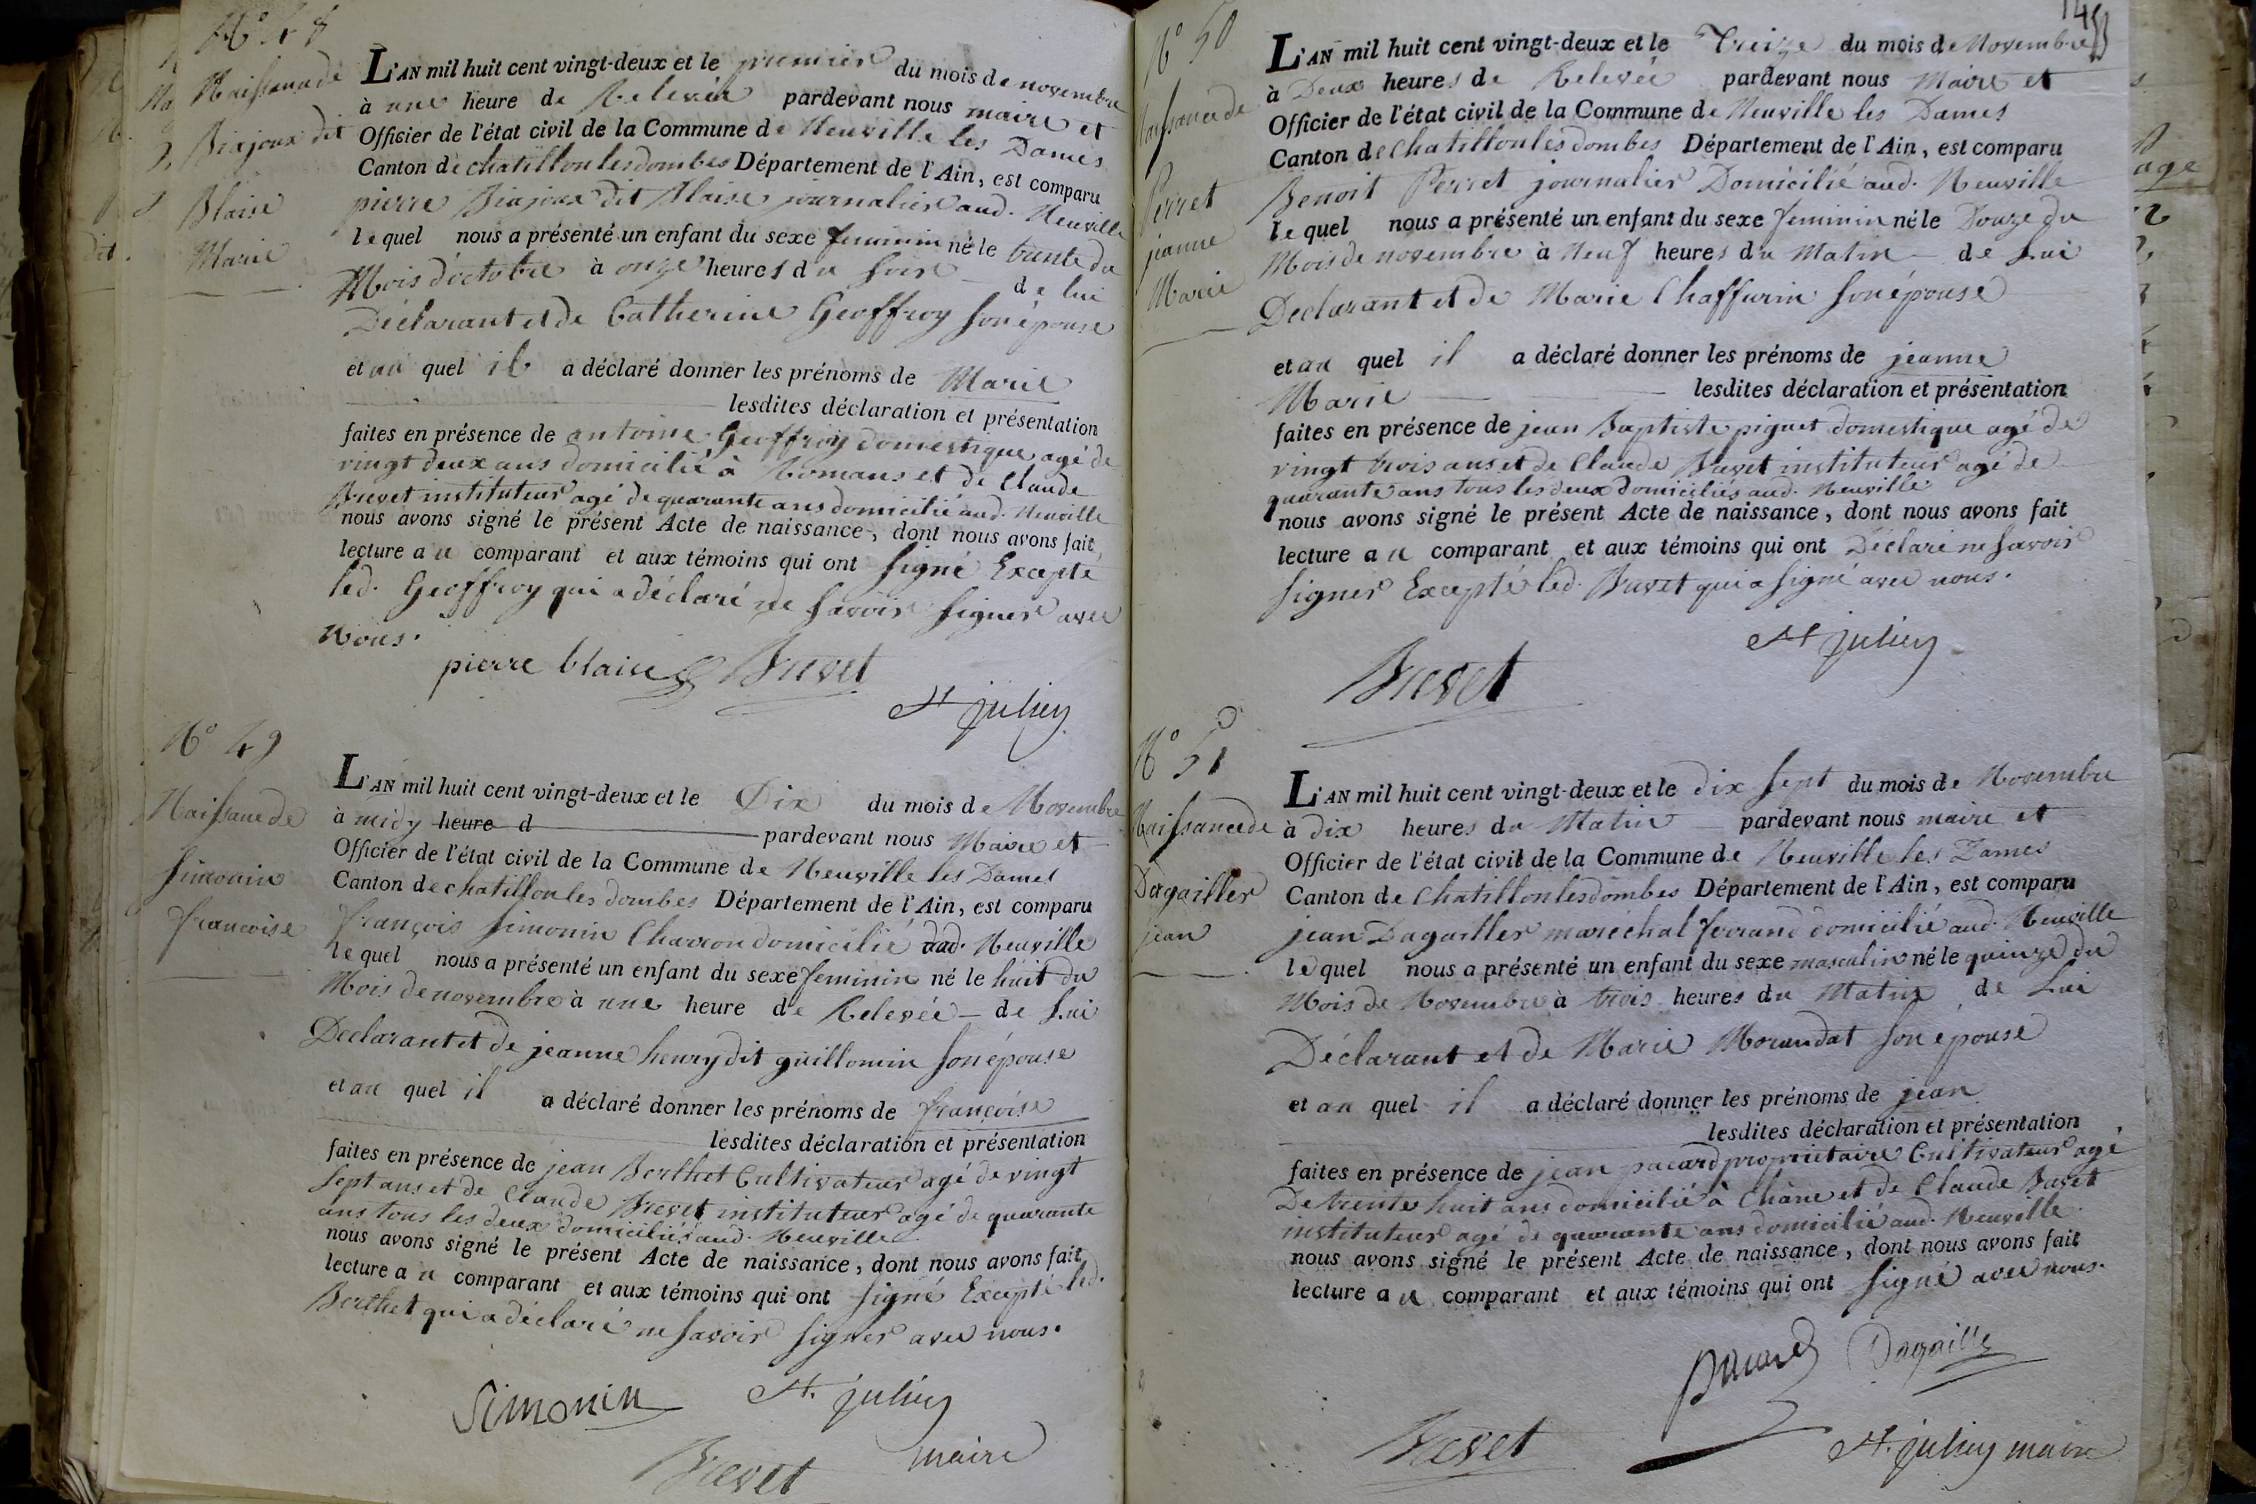 N° 48
Naissance de
Biajoux dit
Blaise
Marie
L'AN mil huit cent vingt-deux et le premier du mois de novembre
à une heure de Relevée pardevant nous maire et
Officier de l'état civil de la Commune de Neuville les Dames
Canton de chatillon les dombes Département de l'Ain, est comparu
pierre Biajoux dit Blaise journalier aud. Neuville
lequel nous a présenté un enfant du sexe feminin né le trente du
Mois d'octobre à onze heures du soir de lui
Déclarant et de Catherine Geoffroy son épouse
et au quel il a déclaré donner les prénoms de Marie
lesdites déclaration et présentation
faites en présence de antoine Geoffroy domestique agé de
vingt deux ans domicilié à Romans et de Claude
Brevet instituteur agé de quarante ans domicilié aud. Neuville
nous avons signé le présent Acte de naissance, dont nous avons fait
lecture au comparant et aux témoins qui ont signé Excepté
led. Geoffroy qui a déclaré ne savoir signer avec
nous.
pierre blaise Brevet
St julien
N° 49
Naissance de
Simonin
francoise
L'AN mil huit cent vingt-deux et le Dix du mois de Novembre
à midy heure d pardevant nous Maire et
Officier de l'état civil de la Commune de Neuville les Dames
Canton de chatillon les dombes Département de l'Ain, est comparu
françois Simonin Charron domicilié aud. Neuville
lequel nous a présenté un enfant du sexe feminin né le huit du
Mois de novembre à une heure de Relevée de Lui
Declarant et de jeanne henry dit guillomin son épouse
et au quel il a déclaré donner les prénoms de françoise
lesdites déclaration et présentation
faites en présence de jean Berthet Cultivateur agé de vingt
sept ans et de Claude Brevet instituteur agé de quarante
ans tous les deux domiciliés aud. Neuville
nous avons signé le présent Acte de naissance, dont nous avons fait
lecture au comparant et aux témoins qui ont signé Excepté led.
Berthet qui a déclaré ne savoir signer avec nous.
Simonin St. julien
Brevet maire
N° 50
Naissance de
Perret
jeanne
Marie
L'AN mil huit cent vingt-deux et le Treize du mois de Novembre
à Deux heures de Relevée pardevant nous Maire et
Officier de l'état civil de la Commune de Neuville les Dames
Canton de Chatillon les dombes Département de l'Ain, est comparu
Benoit Perret journalier Domicilié aud. Neuville
lequel nous a présenté un enfant du sexe feminin né le Douze du
Mois de novembre à Neuf heures du Matin de Lui
Declarant et de Marie Chaffurin son épouse
et au quel il a déclaré donner les prénoms de jeanne
Marie lesdites déclaration et présentation
faites en présence de jean Baptiste piguet domestique agé de
vingt trois ans et de Claude Brevet instituteur agé de
quarante ans tous les deux domiciliés aud. Neuville
nous avons signé le présent Acte de naissance, dont nous avons fait
lecture au comparant et aux témoins qui ont Déclaré ne savoir
signer Excepté led. Brevet qui a signé avec nous.
St julien
Brevet
N° 51
Naissance de
Dagailler
jean
L'AN mil huit cent vingt-deux et le dix sept du mois de Novembre
à dix heures du Matin pardevant nous maire et
Officier de l'état civil de la Commune de Neuville les Dames
Canton de Chatillon les dombes Département de l'Ain, est comparu
jean Dagailler maréchal ferrand domicilié aud. Neuville
lequel nous a présenté un enfant du sexe masculin né le quinze du
Mois de Novembre à trois heures du Matin de Lui
Déclarant et de Marie Morandat son épouse
et au quel il a déclaré donner les prénoms de jean
lesdites déclaration et présentation
faites en présence de jean pacard propriétaire Cultivateur agé
De trente huit ans domicilié à Châne et de Claude Brevet
instituteur agé de quarante ans domicilié aud. Neuville
nous avons signé le présent Acte de naissance, dont nous avons fait
lecture au comparant et aux témoins qui ont signé avec nous.
pacard Dagailler
Brevet St. julien maire
age